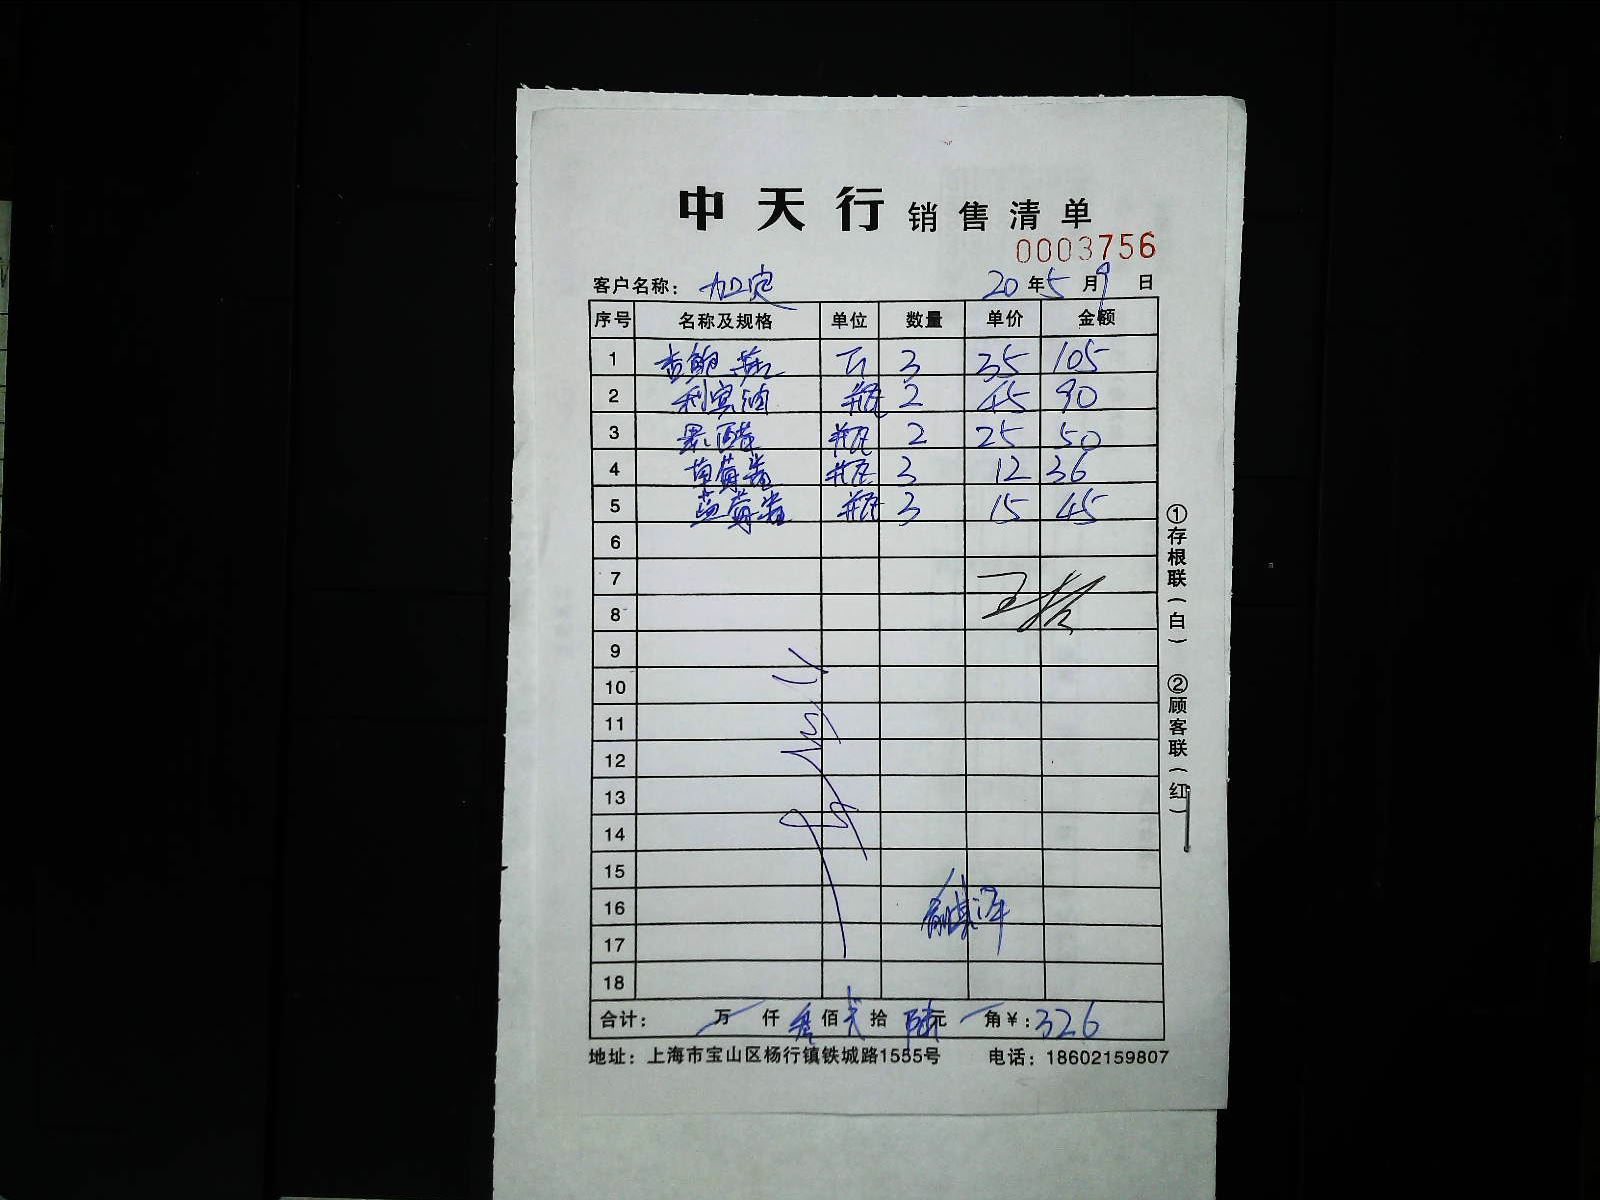 中天行 销售清单
0003756
客户名称： 加定 20年5月9日
序号 名称及规格 单位 数量 单价 金额
1 3 35 105
2 利宾纳 瓶 2 45 90
3 果醋 瓶 2 25 50
4 草莓酱 瓶 3 12 36
5 蓝莓酱 瓶 3 15 45
6
7
8
9
10
11
12
13
14
15
16
17
18
合计： 万 仟 叁佰 贰拾 陆元 角 ¥：326
地址：上海市宝山区杨行镇铁城路1555号 电话：18602159807
①存根联（白） ②顾客联（红）